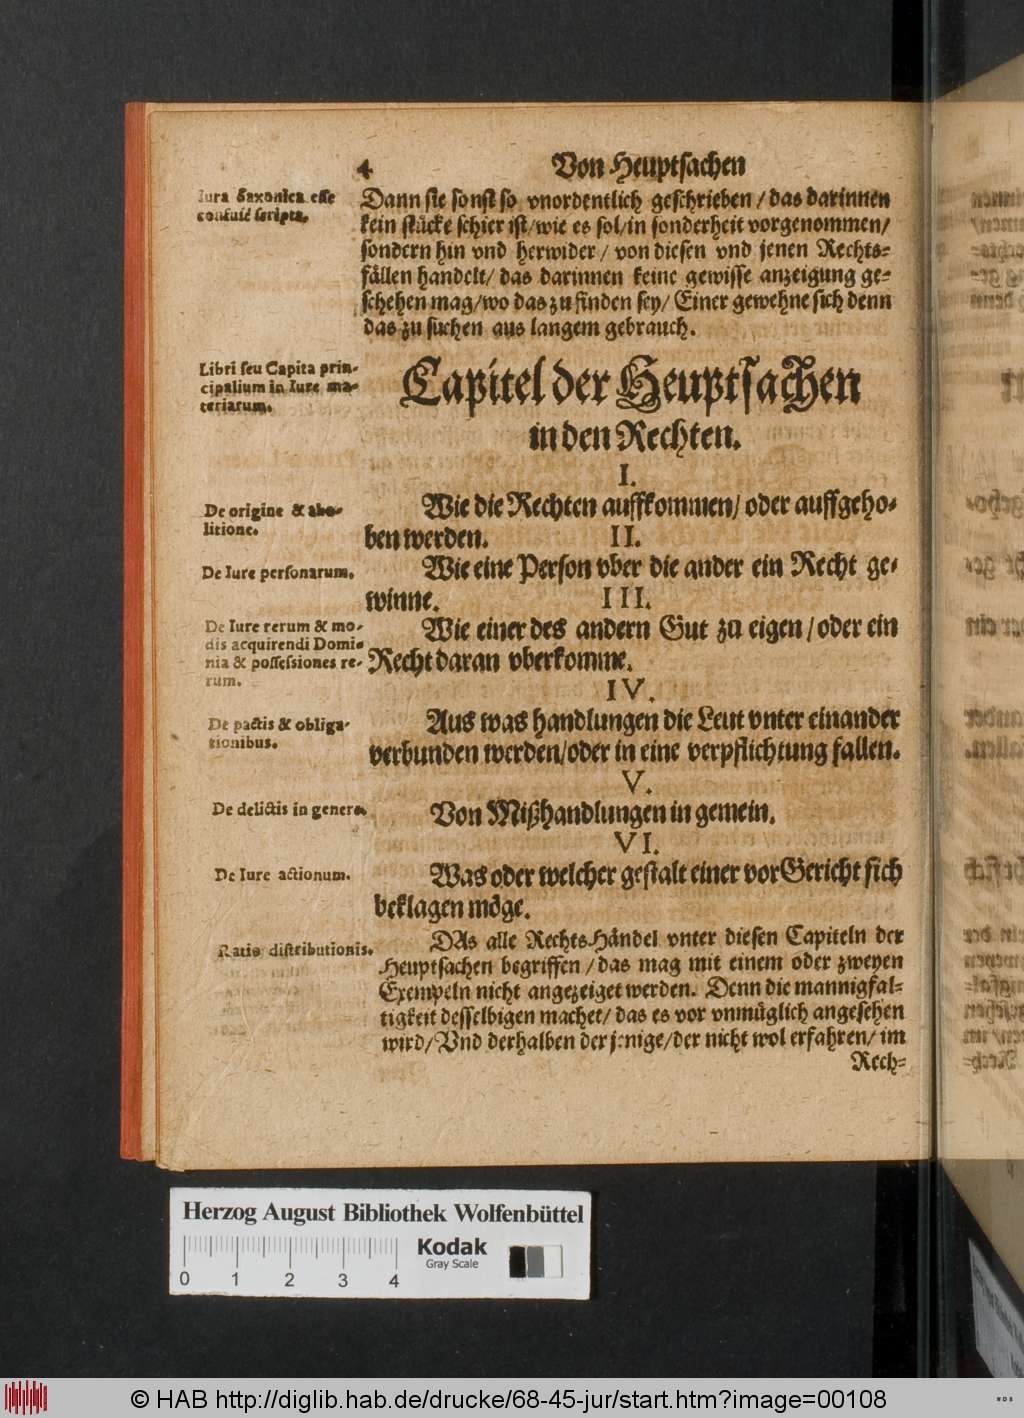 4 Von Heuptsachen
Iura Saxonica esse
confusé scripta.
Dann sie sonst so vnordentlich geschrieben / das darinnen
kein stücke schier ist/wie es sol/in sonderheit vorgenommen/
sondern hin vnd herwider / von diesen vnd jenen Rechts=
fällen handelt/ das darinnen keine gewisse anzeigung ge=
schehen mag/wo das zu finden sey/ Einer gewehne sich denn
das zu suchen aus langem gebrauch.
Libri seu Capita prin-
cipalium in Iure ma-
teriarum.
Capitel der Heuptsachen
in den Rechten.
I.
De origine & abo-
litione.
Wie die Rechten auffkommen/ oder auffgeho=
ben werden. II.
De Iure personarum.
Wie eine Person vber die ander ein Recht ge=
winne. III.
De Iure rerum & mo-
dis acquirendi Domi-
nia & possessiones re-
rum.
Wie einer des andern Gut zu eigen / oder ein
Recht daran vberkomme.
IV.
De pactis & obliga-
tionibus.
Aus was handlungen die Leut vnter einander
verbunden werden/oder in eine verpflichtung fallen.
V.
De delictis in genere.
Von Mißhandlungen in gemein.
VI.
De Iure actionum.
Was oder welcher gestalt einer vor Gericht sich
beklagen möge.
Ratio distributionis.
DAs alle Rechts-Händel vnter diesen Capiteln der
Heuptsachen begriffen / das mag mit einem oder zweyen
Exempeln nicht angezeiget werden. Denn die mannigfal=
tigkeit desselbigen machet/ das es vor vnmüglich angesehen
wird/ Vnd derhalben der jenige/der nicht wol erfahren/ im
Rech=
Herzog August Bibliothek Wolfenbüttel
Kodak
Gray Scale
0 1 2 3 4
© HAB http://diglib.hab.de/drucke/68-45-jur/start.htm?image=00108